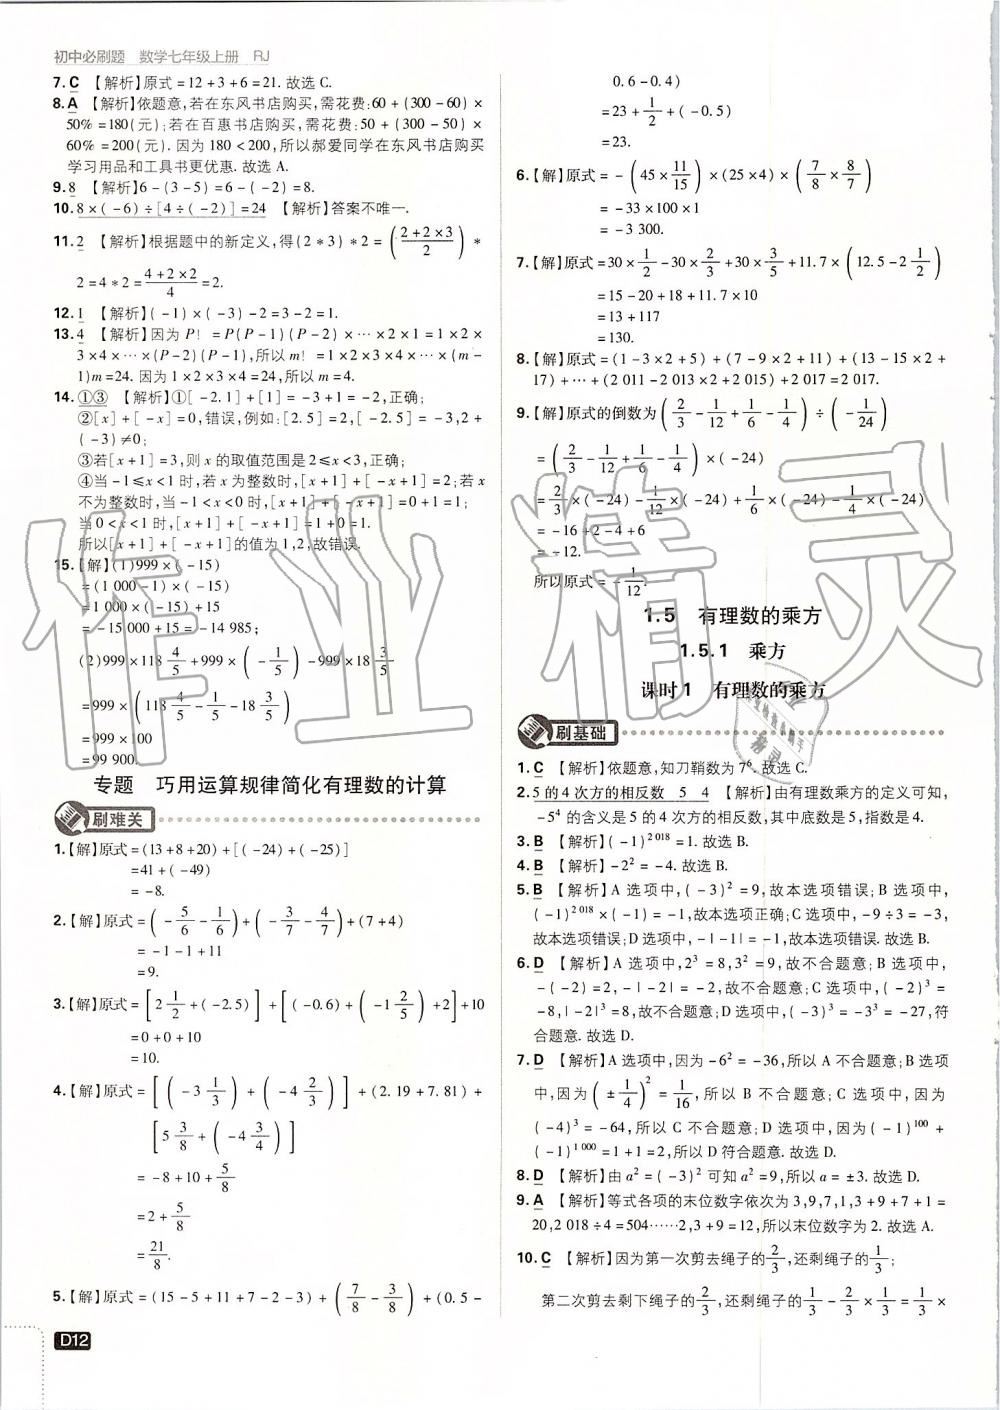 初中必刷题 数学七年级上册 RJ
7. C 【解析】原式=12+3+6=21. 故选 C.
8. A 【解析】依题意,若在东风书店购买,需花费:60+(300-60)×
50%=180(元);若在百惠书店购买,需花费:50+(300-50)×
60%=200(元). 因为 180<200,所以郝爱同学在东风书店购买
学习用品和工具书更优惠. 故选 A.
9. 8 【解析】6-(3-5)=6-(-2)=8.
10. 8×(-6)÷[4÷(-2)]=24 【解析】答案不唯一.
11. 2 【解析】根据题中的新定义,得(2*3)*2=((2+2×3)/2)*
2=4*2=(4+2×2)/4=2.
12. 1 【解析】(-1)×(-3)-2=3-2=1.
13. 4 【解析】因为 P! =P(P-1)(P-2)×…×2×1=1×2×
3×4×…×(P-2)(P-1),所以 m! =1×2×3×4×…×(m-
1)m=24. 因为 1×2×3×4=24,所以 m=4.
14. ①③ 【解析】①[-2.1]+[1]=-3+1=-2,正确;
②[x]+[-x]=0,错误,例如:[2.5]=2,[-2.5]=-3,2+
(-3)≠0;
③若[x+1]=3,则 x 的取值范围是 2≤x<3,正确;
④当-1≤x<1时,若 x 为整数,[x+1]+[-x+1]=2;若 x
不为整数时,当-1<x<0时,[x+1]+[-x+1]=0+1=1;
当 0<x<1 时,[x+1]+[-x+1]=1+0=1.
所以[x+1]+[-x+1]的值为 1,2,故错误.
15.【解】(1)999×(-15)
=(1 000-1)×(-15)
=1 000×(-15)+15
=-15 000+15=-14 985;
(2)999×118 4/5+999×(-1/5)-999×18 3/5
=999×(118 4/5-1/5-18 3/5)
=999×100
=99 900.
专题 巧用运算规律简化有理数的计算
刷难关
1.【解】原式=(13+8+20)+[(-24)+(-25)]
=41+(-49)
=-8.
2.【解】原式=(-5/6-1/6)+(-3/7-4/7)+(7+4)
=-1-1+11
=9.
3.【解】原式=[2 1/2+(-2.5)]+[(-0.6)+(-1 2/5)+2]+10
=0+0+10
=10.
4.【解】原式=[(-3 1/3)+(-4 2/3)]+(2.19+7.81)+
[5 3/8+(-4 3/4)]
=-8+10+5/8
=2+5/8
=21/8.
5.【解】原式=(15-5+11+7-2-3)+(7/8-3/8)+(0.5-
D12
0.6-0.4)
=23+1/2+(-0.5)
=23.
6.【解】原式=-(45×11/15)×(25×4)×(7/8×8/7)
=-33×100×1
=-3 300.
7.【解】原式=30×1/2-30×2/3+30×3/5+11.7×(12.5-2 1/2)
=15-20+18+11.7×10
=13+117
=130.
8.【解】原式=(1-3×2+5)+(7-9×2+11)+(13-15×2+
17)+…+(2 011-2 013×2+2 015)+2 017=2 017.
9.【解】原式的倒数为(2/3-1/12+1/6-1/4)÷(-1/24)
=(2/3-1/12+1/6-1/4)×(-24)
=2/3×(-24)-1/12×(-24)+1/6×(-24)-1/4×(-24)
=-16+2-4+6
=-12.
所以原式=-1/12.
1.5 有理数的乘方
1.5.1 乘方
课时1 有理数的乘方
刷基础
1. C 【解析】依题意,知刀鞘数为 7⁶. 故选 C.
2. 5 的 4 次方的相反数 5 4 【解析】由有理数乘方的定义可知,
-5⁴ 的含义是 5 的 4 次方的相反数,其中底数是 5,指数是 4.
3. B 【解析】(-1)²⁰¹⁸=1. 故选 B.
4. B 【解析】-2²=-4. 故选 B.
5. B 【解析】A 选项中,(-3)²=9,故本选项错误;B 选项中,
(-1)²⁰¹⁸×(-1)=-1,故本选项正确;C 选项中,-9÷3=-3,
故本选项错误;D 选项中,-|-1|=-1,故本选项错误. 故选 B.
6. D 【解析】A 选项中,2³=8,3²=9,故不合题意;B 选项中,
-(-2)=2,-|-2|=-2,故不合题意;C 选项中,(-2)³=
-8,|-2|³=8,故不合题意;D 选项中,(-3)³=-3³=-27,符
合题意. 故选 D.
7. D 【解析】A选项中,因为-6²=-36,所以 A 不合题意;B选项
中,因为(±1/4)²=1/16,所以 B 不合题意;C 选项中,因为
(-4)³=-64,所以 C 不合题意;D 选项中,因为(-1)¹⁰⁰+
(-1)¹⁰⁰⁰=1+1=2,所以 D 符合题意. 故选 D.
8. D 【解析】由 a²=(-3)² 可知 a²=9,所以 a=±3. 故选 D.
9. A 【解析】等式各项的末位数字依次为 3,9,7,1,3+9+7+1=
20,2 018÷4=504……2,3+9=12,所以末位数字为 2. 故选 A.
10. C 【解析】因为第一次剪去绳子的2/3,还剩绳子的1/3;
第二次剪去剩下绳子的2/3,还剩绳子的1/3-2/3×1/3=1/3×
作业精灵